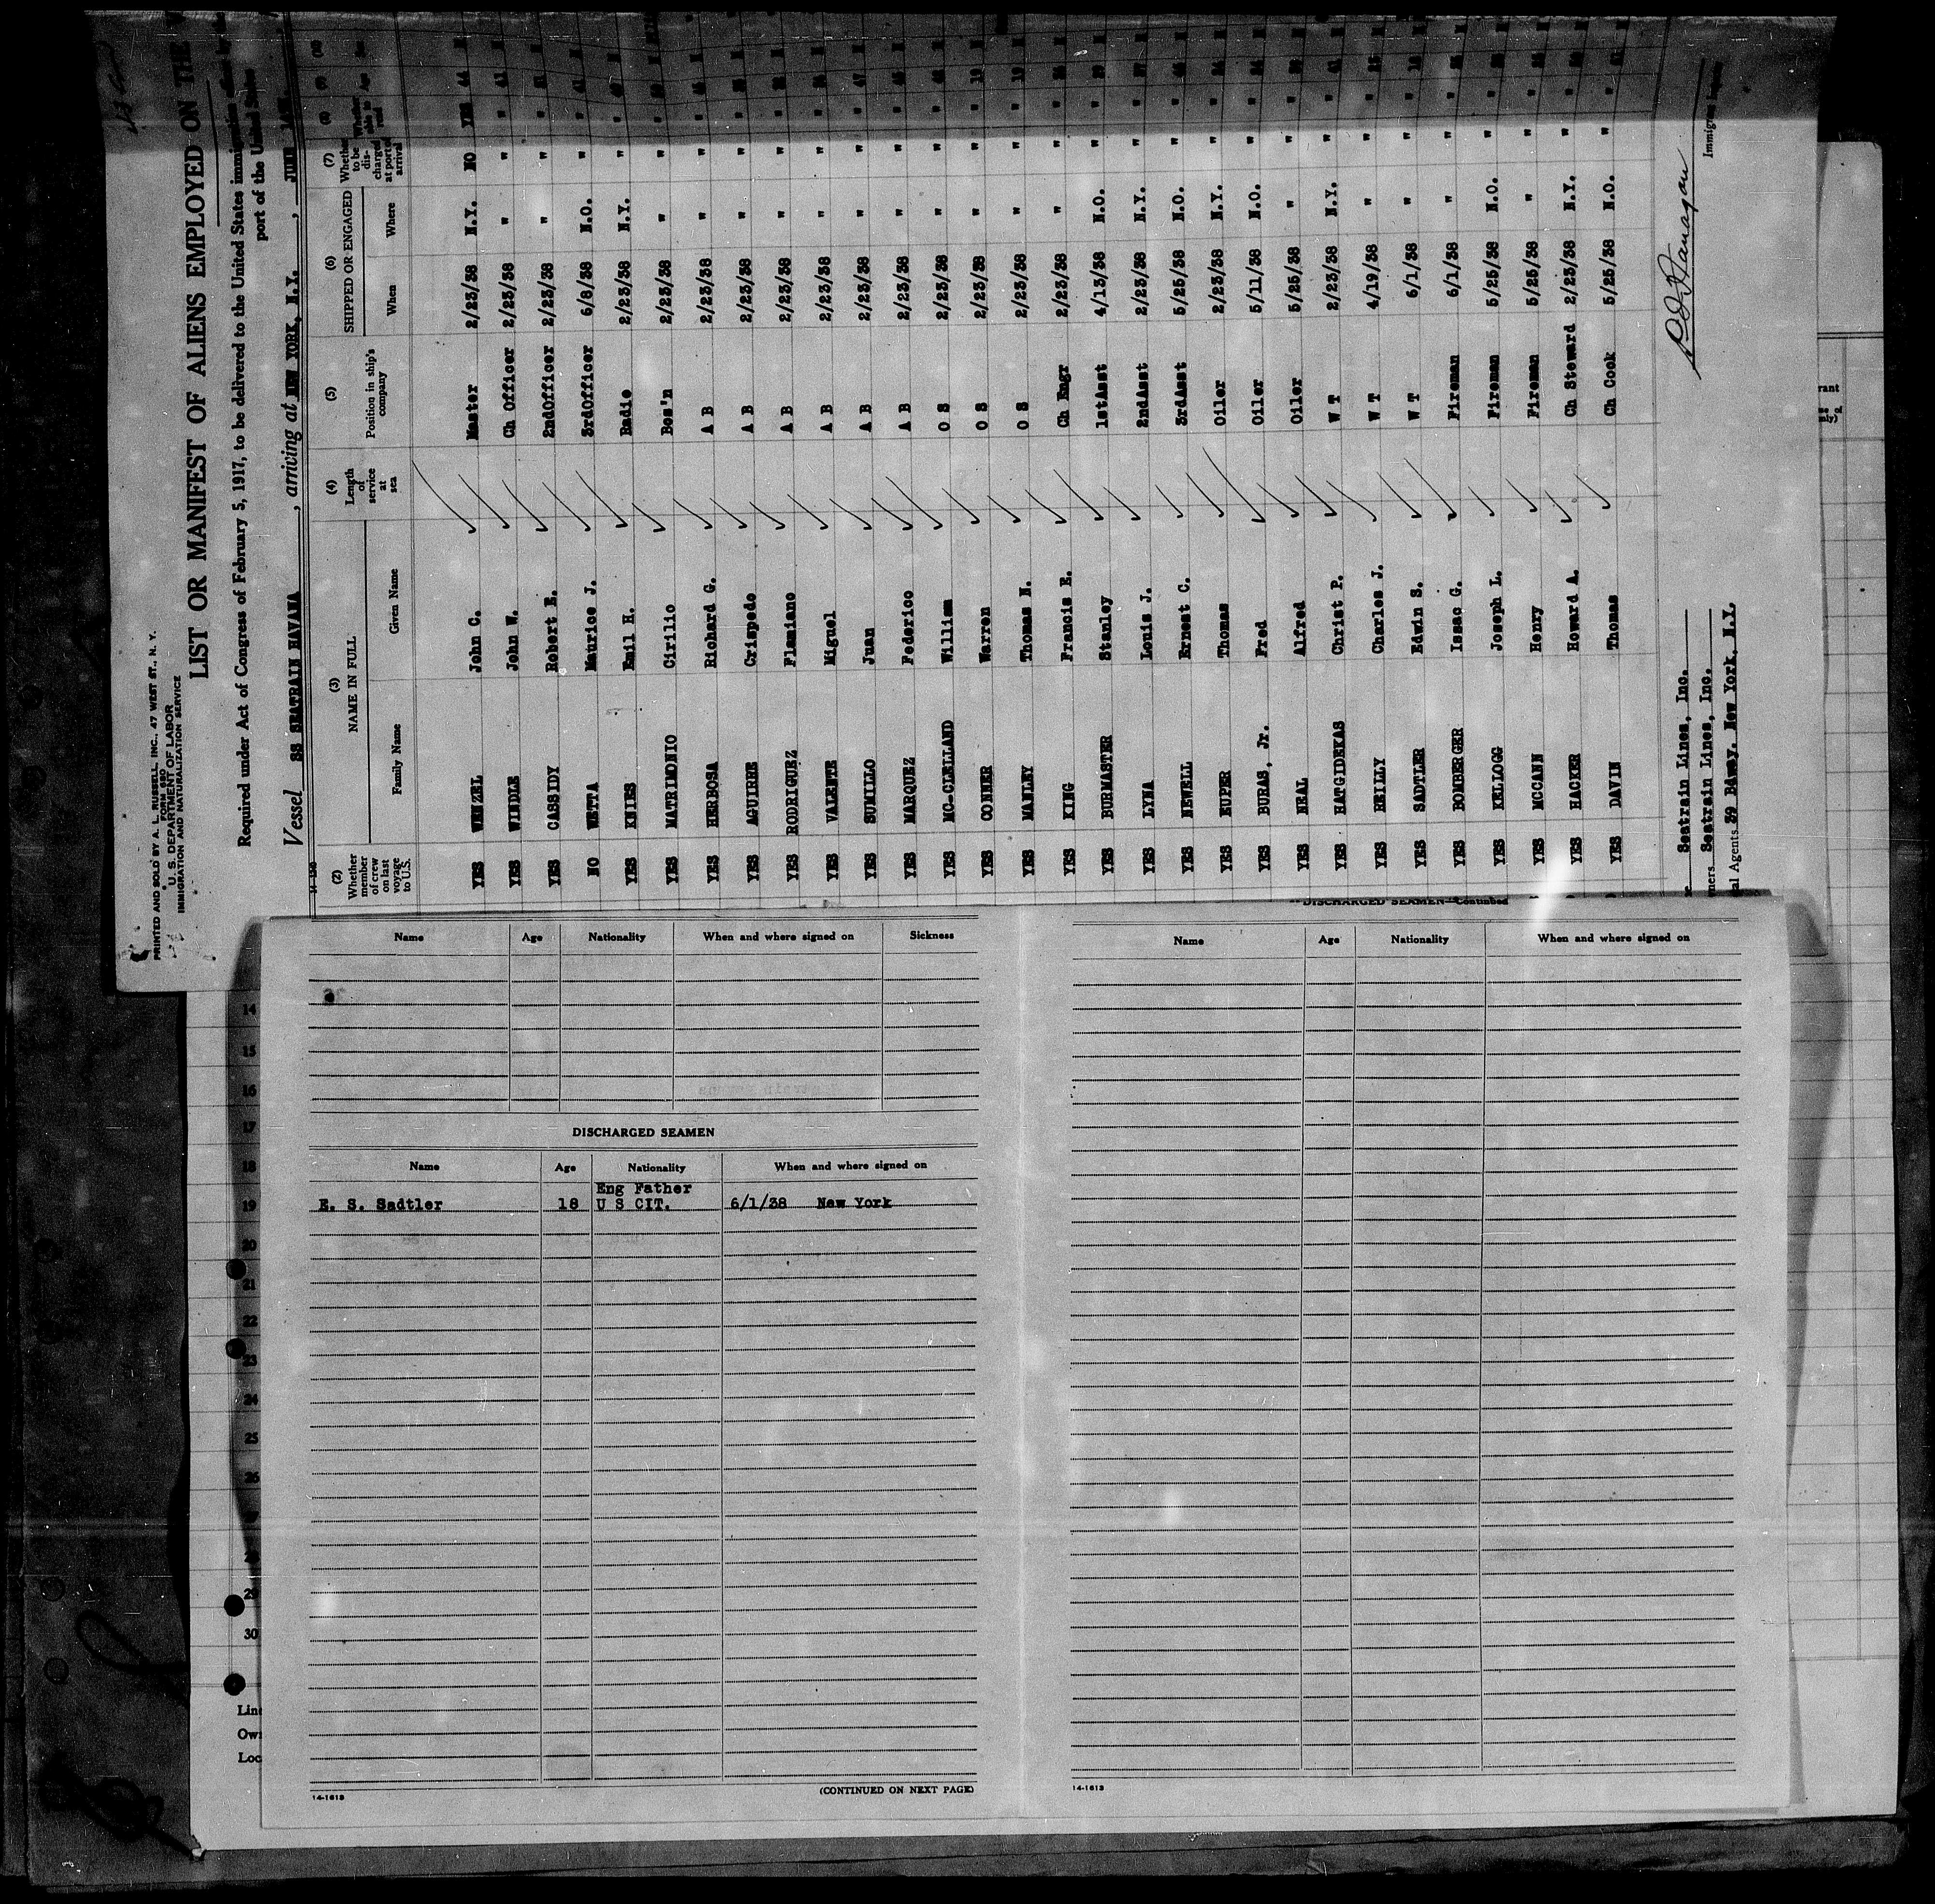 PRINTED AND SOLD BY A. L. RUSSELL, INC., 47 WEST ST., N. Y.
FORM 680
U. S. DEPARTMENT OF LABOR
IMMIGRATION AND NATURALIZATION SERVICE
LIST OR MANIFEST OF ALIENS EMPLOYED ON THE
Required under Act of Congress of February 5, 1917, to be delivered to the United States
port of the United States
Vessel SS SEATRAIN HAVANA, arriving at NEW YORK, N.Y.,
(2) (3) (4) (5) (6) (7) (8)
Whether member of crew on last voyage to U.S. NAME IN FULL Length of service at sea Position in ship's company SHIPPED OR ENGAGED Whether to be discharged at port of arrival
Family Name Given Name When Where
YES WENZEL John C. Master 2/23/38 N.Y. NO YES 44
YES WINDLE John W. Ch Officer 2/23/38 " "
YES CASSIDY Robert E. 2ndOfficer 2/23/38 " "
NO WETTA Maurice J. 3rdOfficer 6/8/38 N.O. "
YES KNIES Emil H. Radio 2/23/38 N.Y. "
YES MATRIMONIO Cirilio Bos'n 2/23/38 " "
YES HERBOSA Richard G. A B 2/23/38 " "
YES AGUIRRE Crispedo A B 2/23/38 " "
YES RODRIGUEZ Flamiano A B 2/23/38 " "
YES VALENTE Miguel A B 2/23/38 " "
YES SUMILLO Juan A B 2/23/38 " "
YES MARQUEZ Federico A B 2/23/38 " "
YES MC-CLELLAND William O S 2/23/38 " "
YES CONNER Warren O S 2/23/38 " "
YES MANLEY Thomas N. O S 2/23/38 " "
YES KING Francis E. Ch Engr 2/23/38 " "
YES BURMASTER Stanley 1stAsst 4/13/38 N.O. "
YES LYNA Louis J. 2ndAsst 2/23/38 N.Y. "
YES NEWELL Ernest C. 3rdAsst 5/25/38 N.O. "
YES EUPER Thomas Oiler 2/23/38 N.Y. "
YES BURAS, Jr. Fred Oiler 5/11/38 N.O. "
YES NEAL Alfred Oiler 5/25/38 " "
YES HATGIDEKAS Christ P. W T 2/23/38 N.Y. "
YES REILLY Charles J. W T 4/19/38 " "
YES SADTLER Edwin S. W T 6/1/38 " "
YES BOMBERGER Isaac G. Fireman 6/1/38 " "
YES KELLOGG Joseph L. Fireman 5/25/38 N.O. "
YES MCCANN Henry Fireman 5/25/38 " "
YES HACKER Howard A. Ch Steward 2/23/38 N.Y. "
YES DAVIN Thomas Ch Cook 5/25/38 N.O. "
Seatrain Lines, Inc.
Seatrain Lines, Inc.
Agents 39 Bdwy. New York, N.Y.
Immigrant Inspector
Name Age Nationality When and where signed on Sickness
DISCHARGED SEAMEN
Name Age Nationality When and where signed on
Eng Father
E. S. Sadtler 18 U S CIT. 6/1/38 New York
(CONTINUED ON NEXT PAGE)
14-1613
DISCHARGED SEAMEN—Continued
Name Age Nationality When and where signed on
14-1613
14
15
16
17
18
19
20
21
22
23
24
25
26
29
30